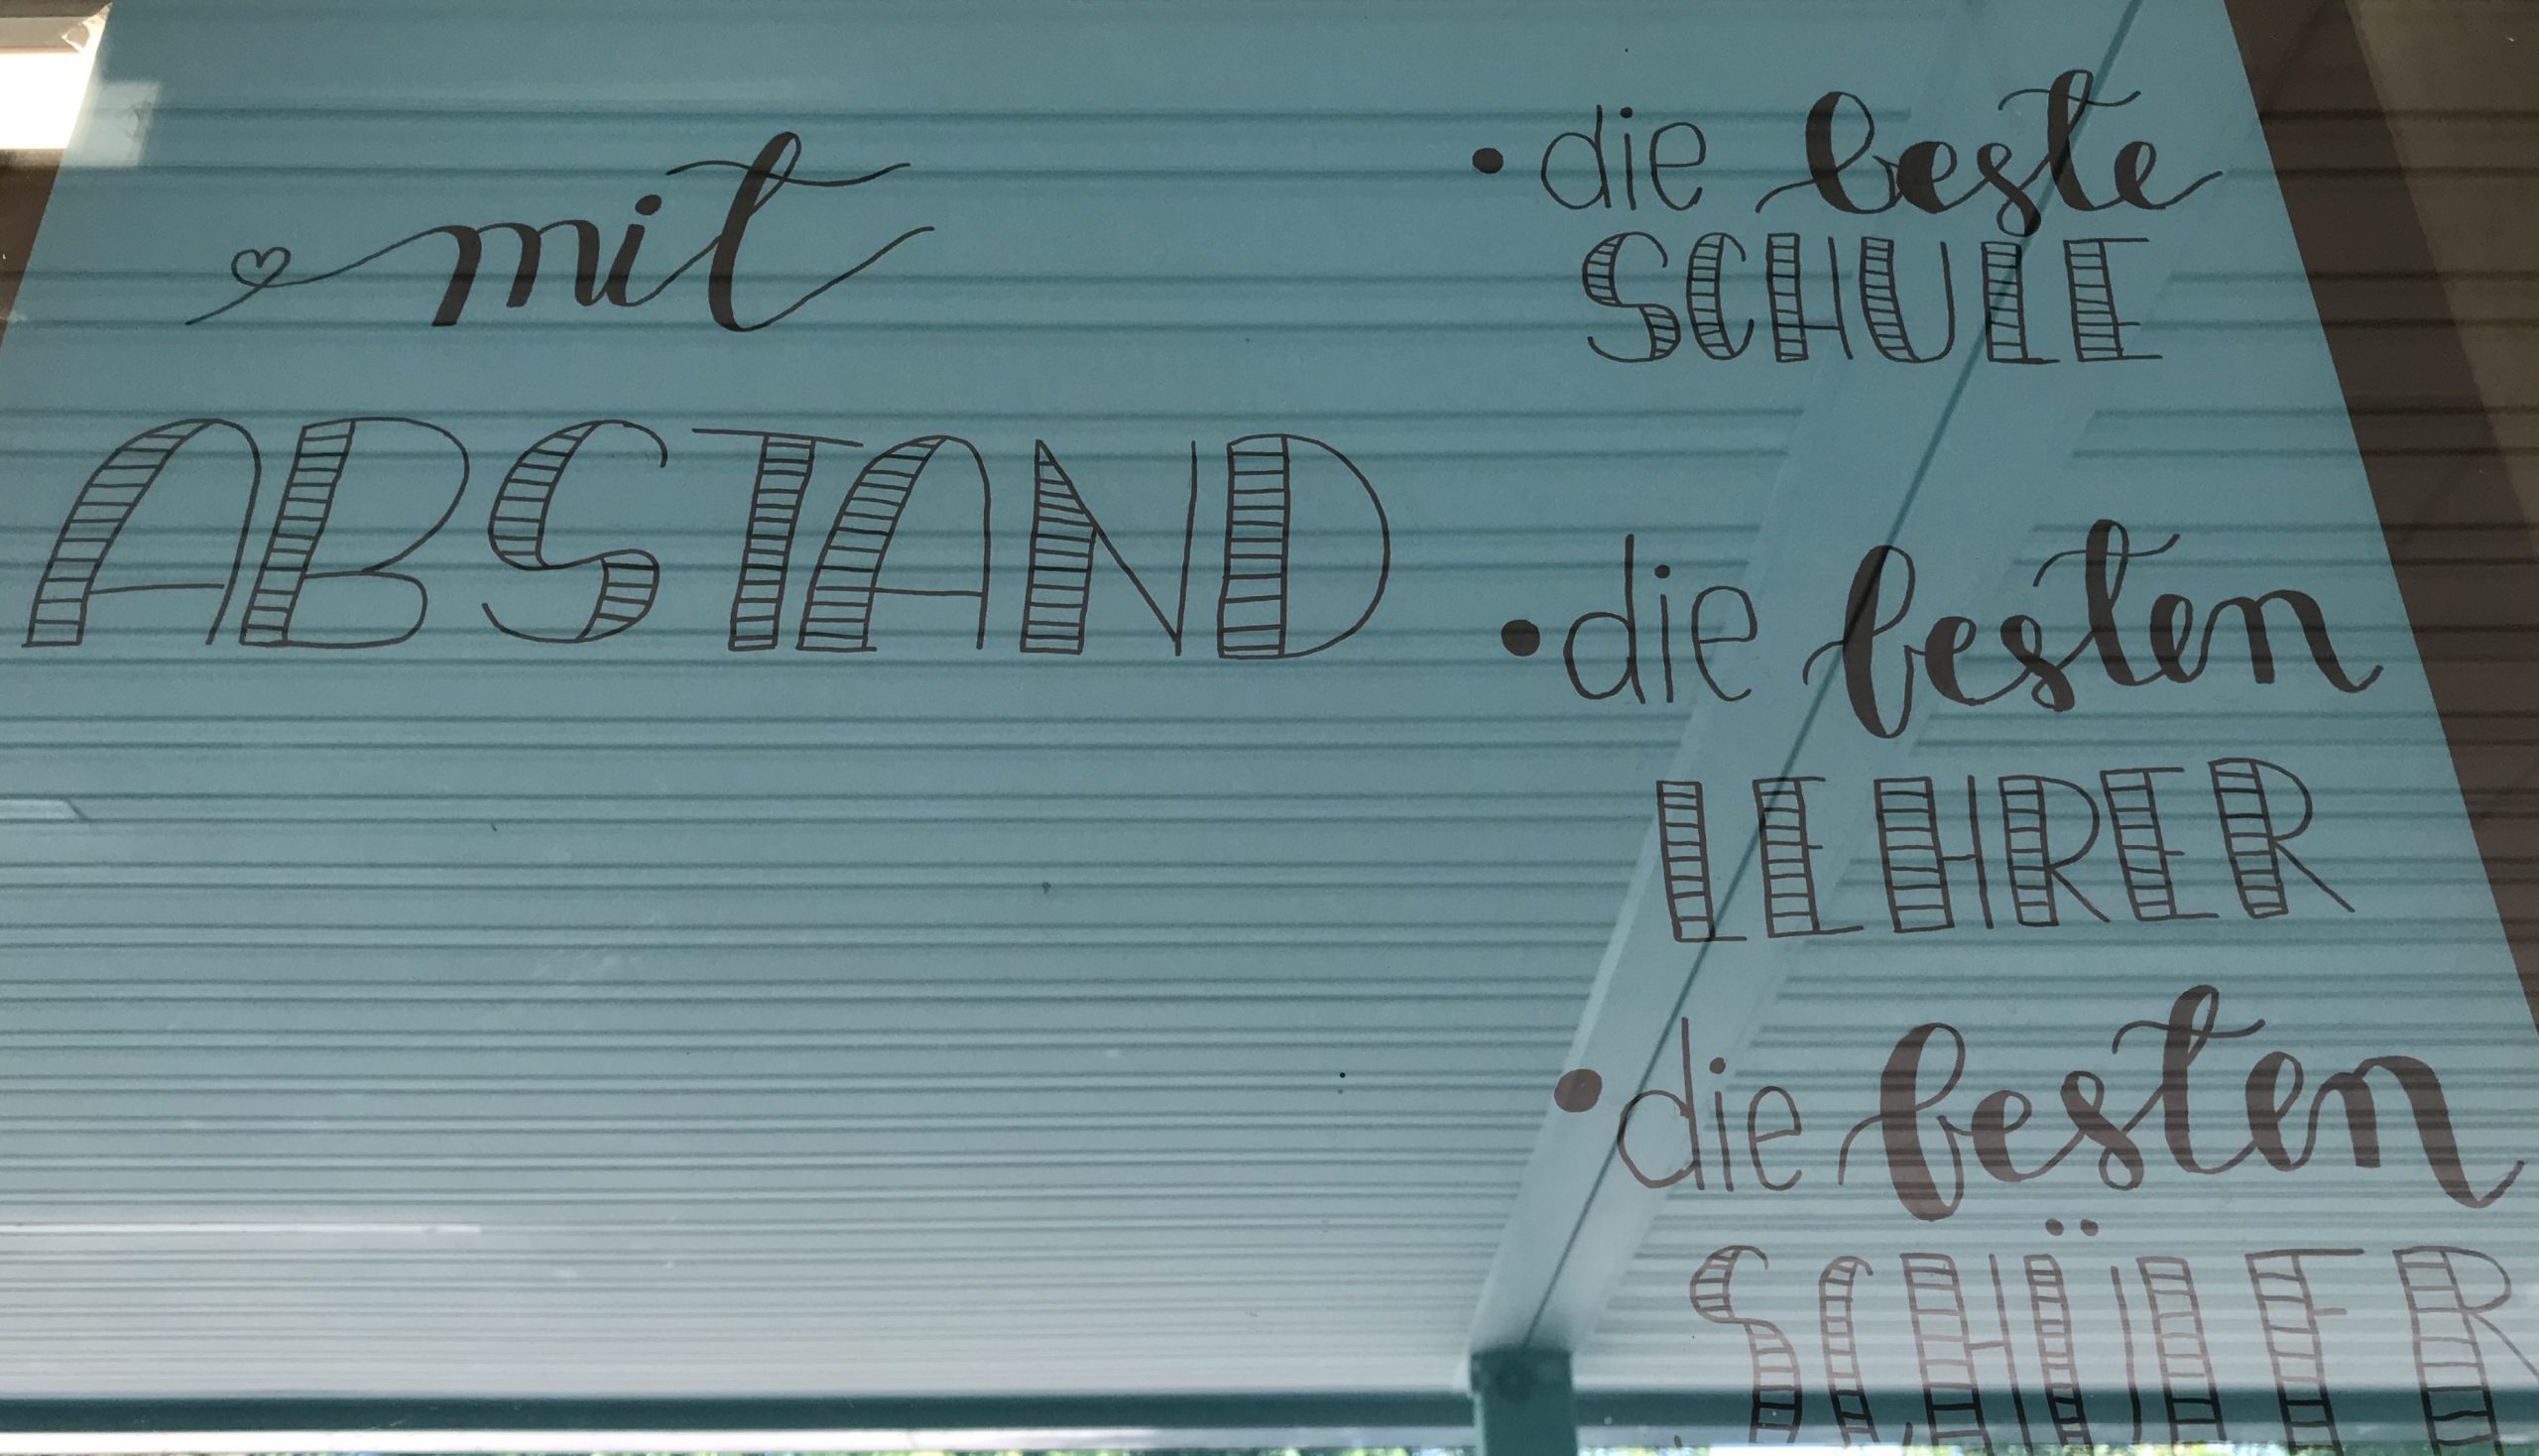 mit
ABSTAND
• die beste
SCHULE
• die besten
LEHRER
• die besten
SCHÜLER